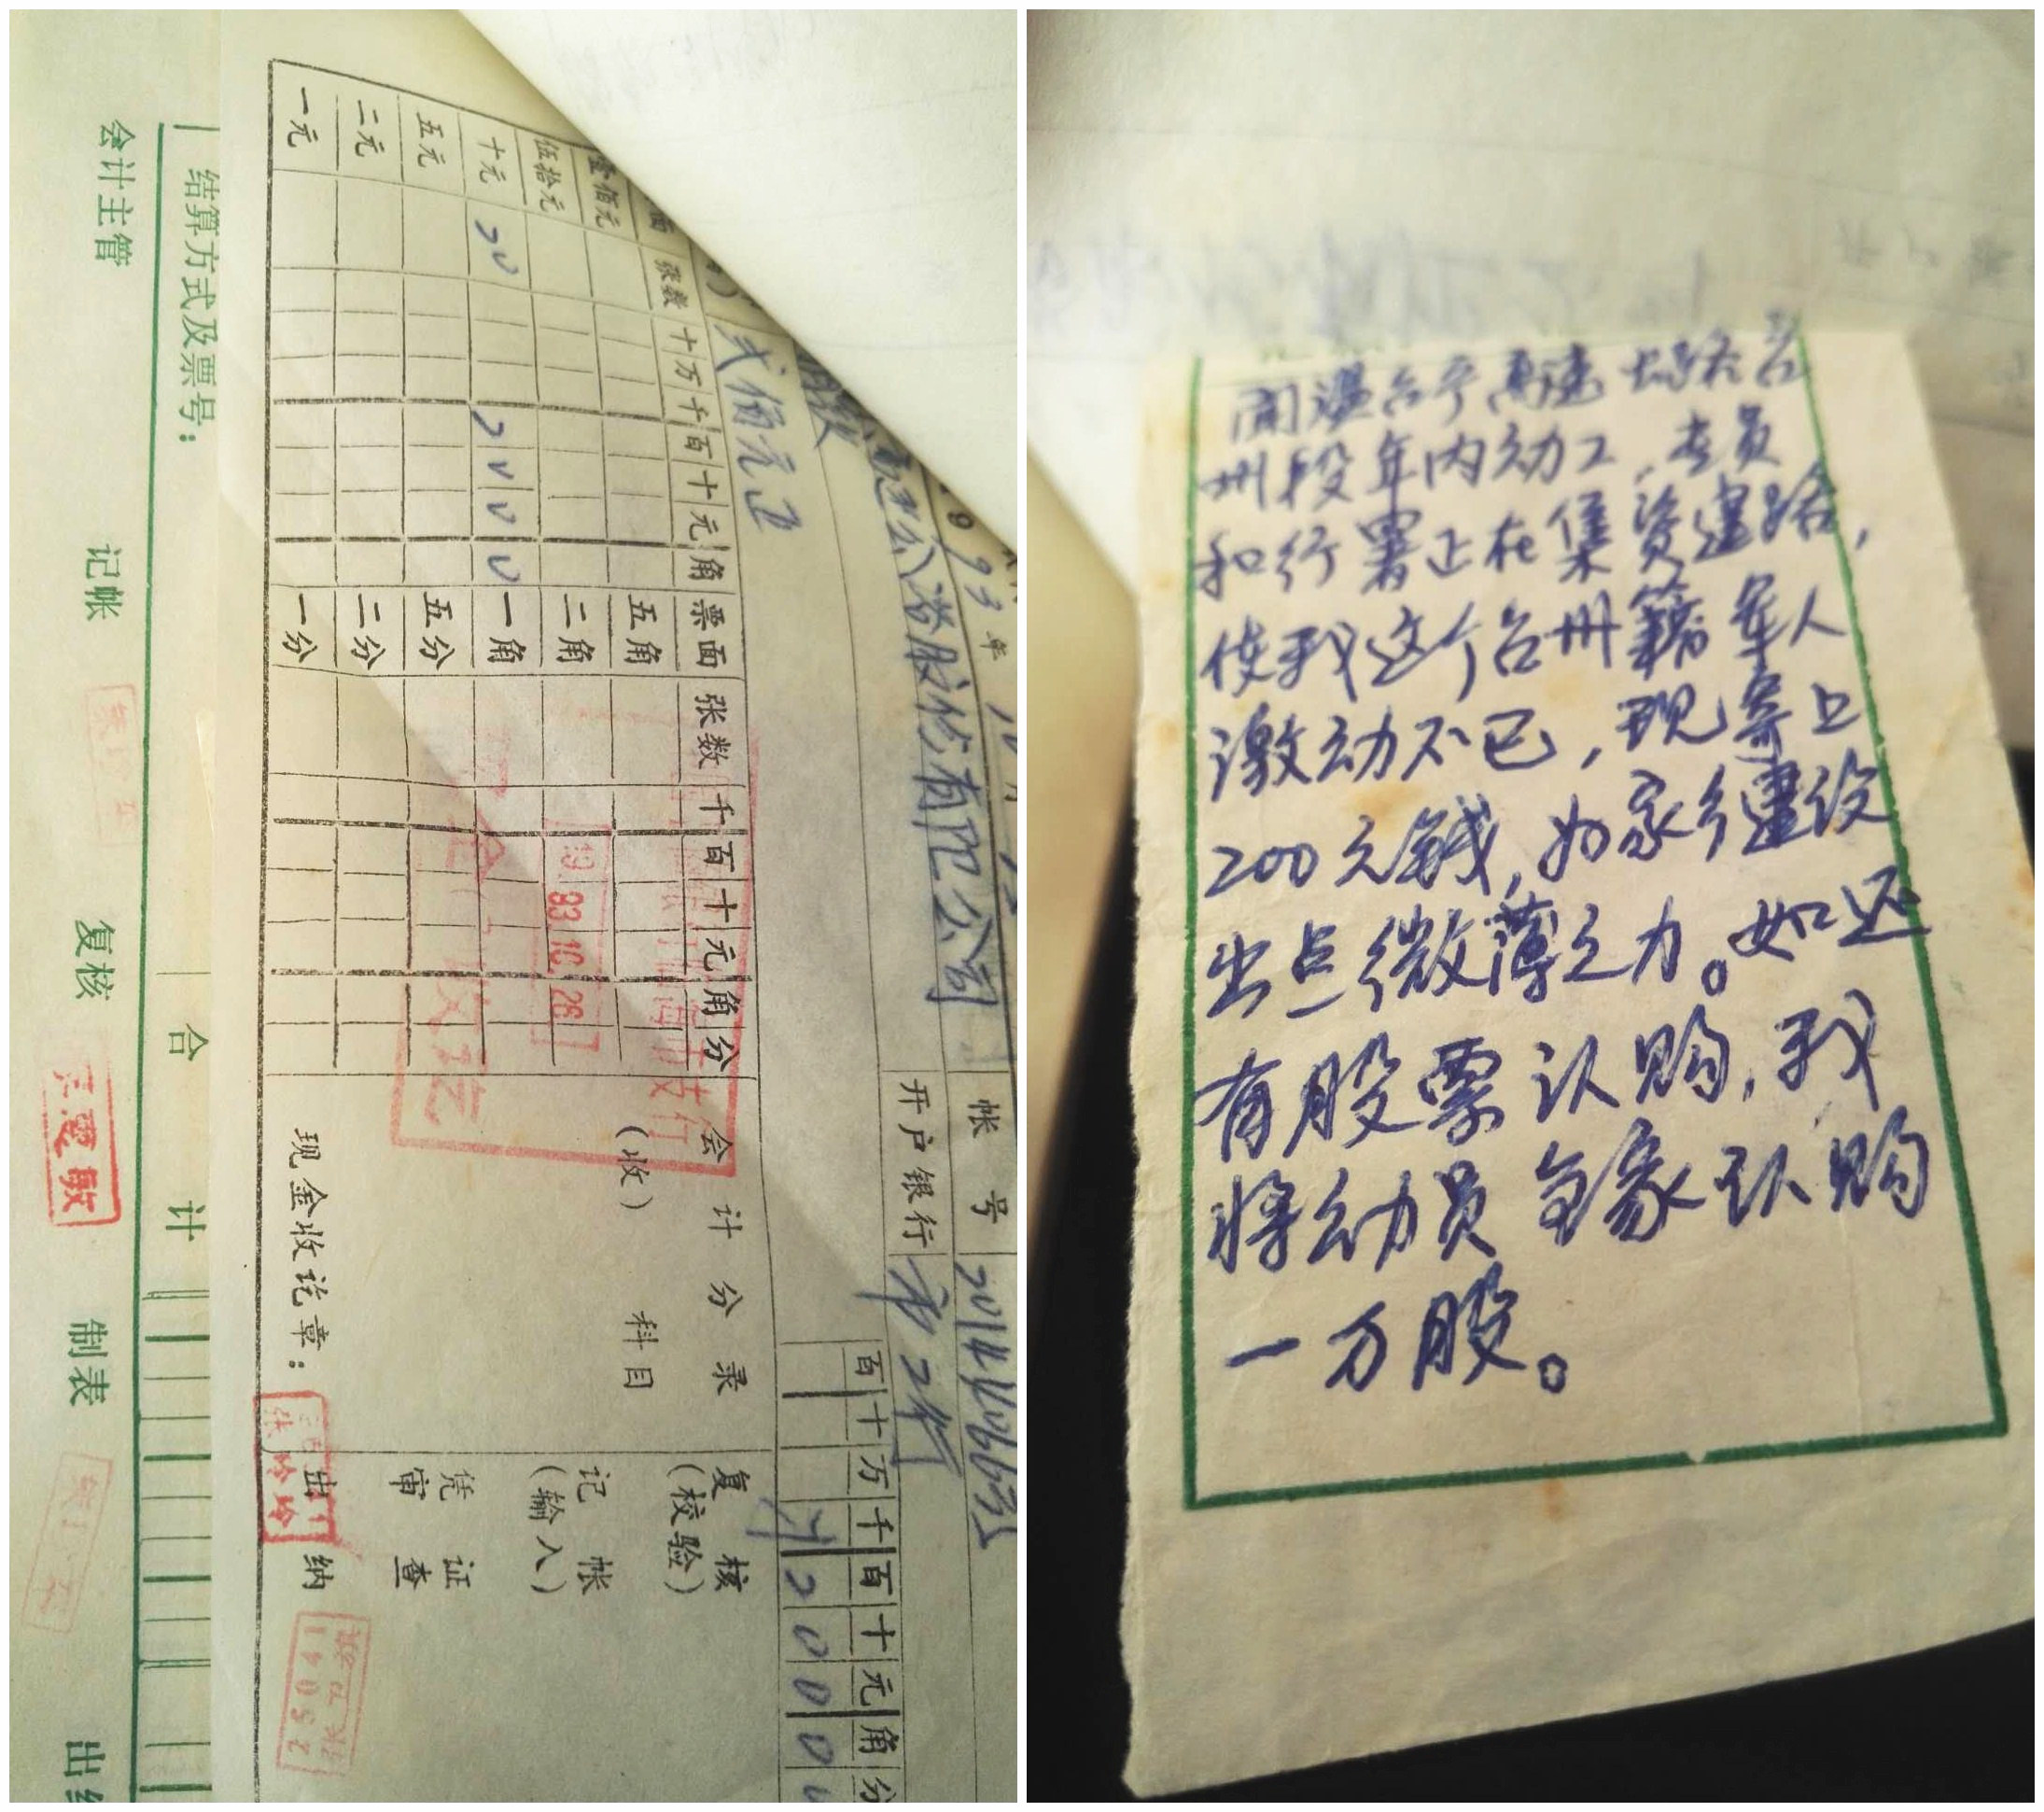 结算方式及票号：
会计主管
记帐
复核
制表
合计
一元
二元
五元
十元
伍拾元
壹佰元
20
2000
张数
十万千百十元角
票面
五角
二角
一角
五分
二分
一分
张数
千百十元角分
会计分录
(收)
科目
现金收讫章：
复核
(校验)
记帐
(输入)
凭证
审查
出纳
弍佰元正
公路股份有限公司
帐号
开户银行
百十万千百十元角分
¥20000
93年10月
19 93.10.26
闻温台宁高速公路台
州段年内动工，专员
和行署正在集资建路，
使我这个台州籍军人
激动不已，现寄上
200元钱，为家乡建设
出点微薄之力。如还
有股票认购，我
将动员全家认购
一万股。